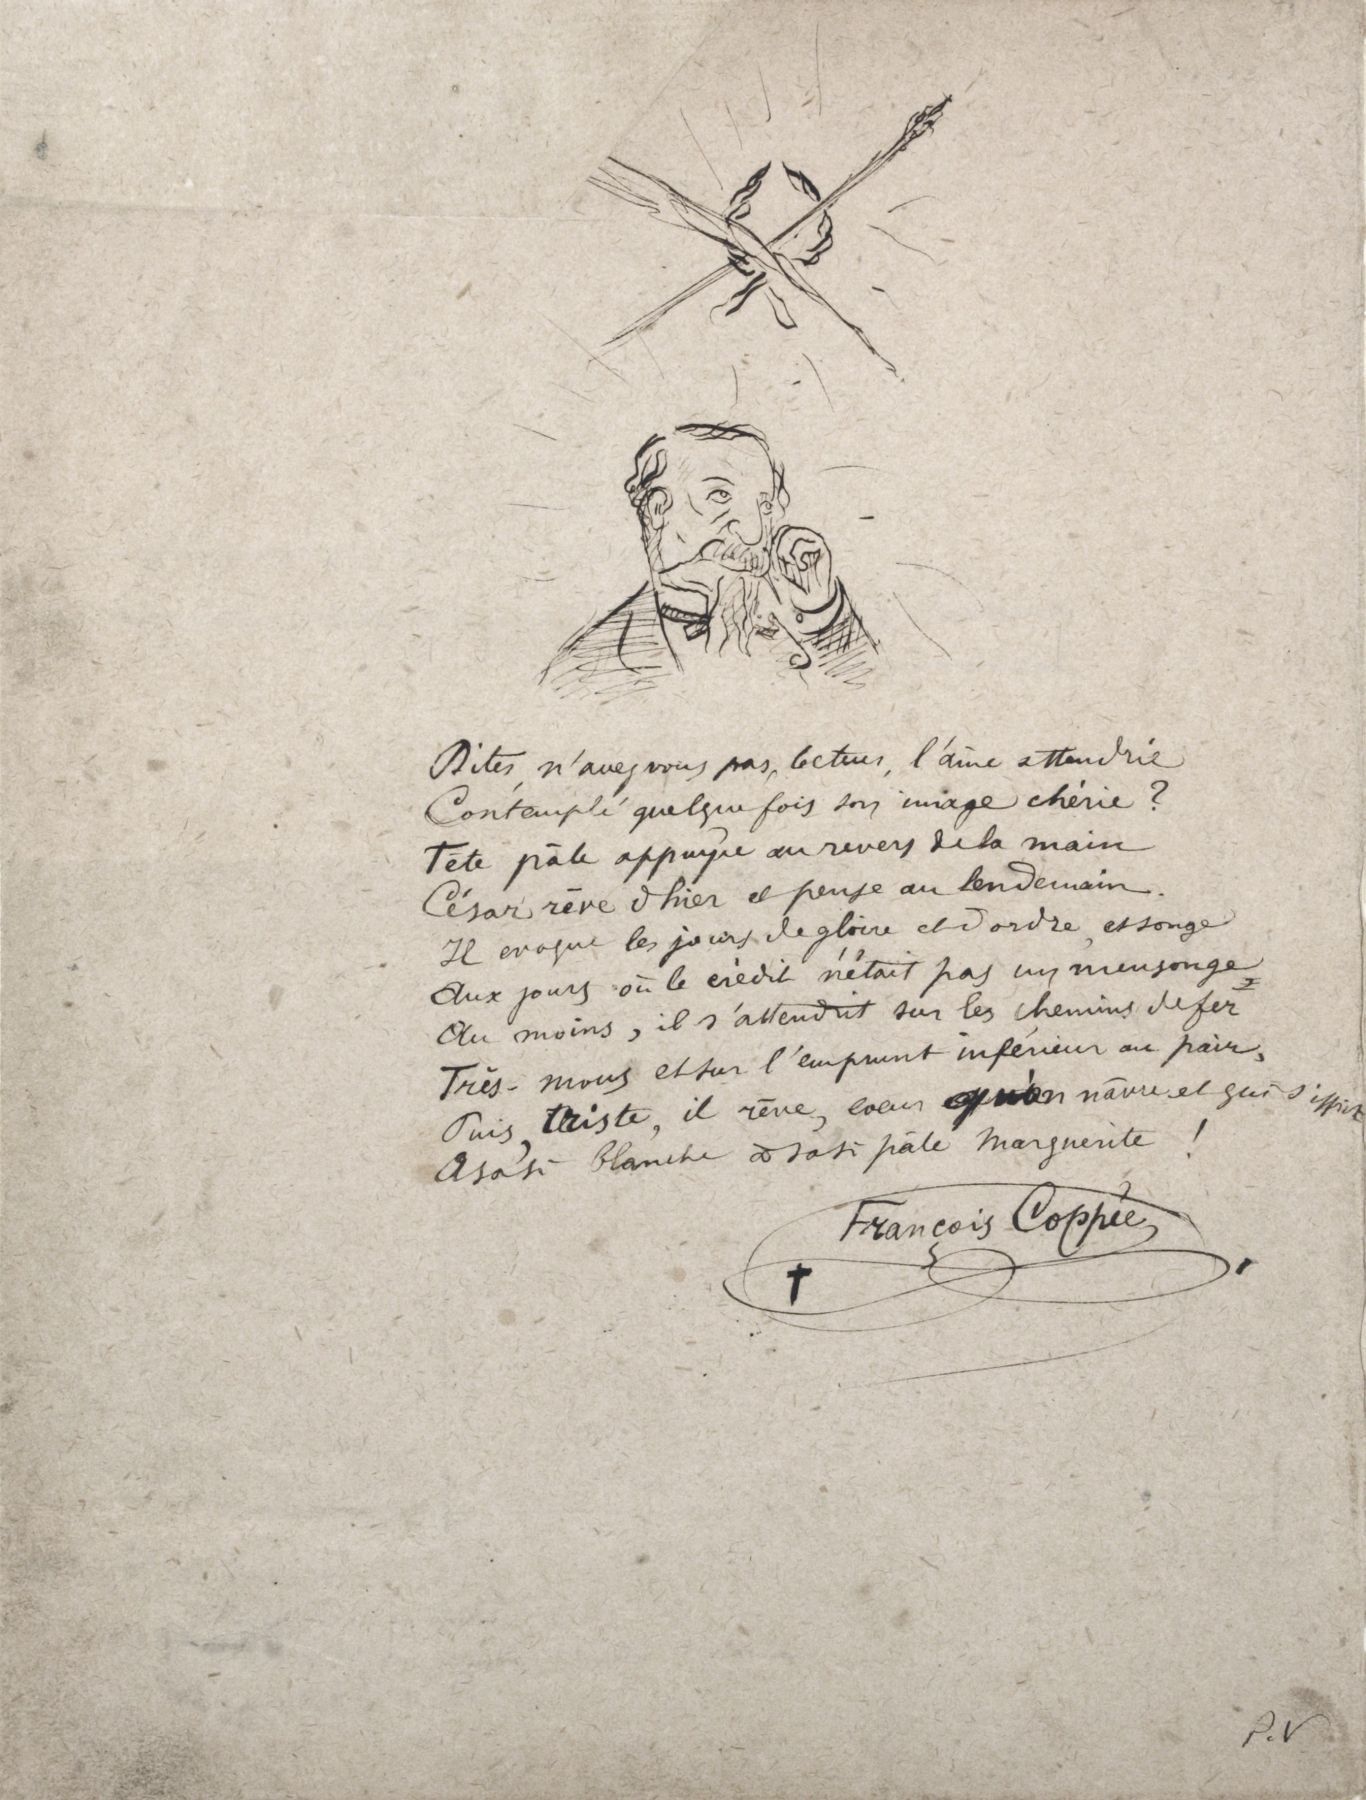 Dites, n'avez vous pas, lecteur, l'âme attendrie
Contemplé quelque fois son image chérie ?
Tête pâle appuyée au revers de la main
César rêve d'hier et pense au lendemain.
Il evoque les jours de gloire et d'ordre, et songe
Aux jours où le crédit n'était pas un mensonge
Au moins, il s'attendrit sur les chemins de fer
Très-mous et sur l'emprunt inférieur au pair,
Puis, triste, il rêve, coeur qu'on nâvre et qui s'
A sa si blanche à sa si pâle Marguerite !
François Coppée
P.V